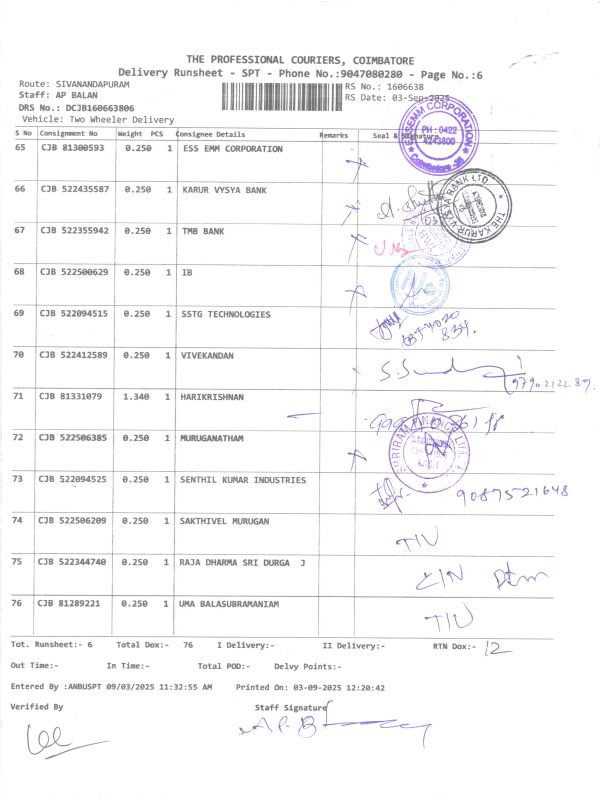 THE PROFESSIONAL COURIERS, COIMBATORE
Delivery Runsheet - SPT - Phone No.:9047080280 - Page No.:6
Route: SIVANANDAPURAM RS No.: 1606638
Staff: AP BALAN RS Date: 03-Sep-2025
DRS No.: DCJB160663806
Vehicle: Two Wheeler Delivery
S No Consignment No Weight PCS Consignee Details Remarks Seal & Signature
65 CJB 81300593 0.250 1 ESS EMM CORPORATION
ESSEMM CORPORATION
PH : 0422
4243800
66 CJB 522435587 0.250 1 KARUR VYSYA BANK
THE KARUR VYSYA BANK LTD
67 CJB 522355942 0.250 1 TMB BANK
68 CJB 522500629 0.250 1 IB
69 CJB 522094515 0.250 1 SSTG TECHNOLOGIES
834.
70 CJB 522412589 0.250 1 VIVEKANDAN
71 CJB 81331079 1.340 1 HARIKRISHNAN
72 CJB 522506385 0.250 1 MURUGANATHAM
SHRIRAM FINANCE LTD
73 CJB 522094525 0.250 1 SENTHIL KUMAR INDUSTRIES
9087521648
74 CJB 522506209 0.250 1 SAKTHIVEL MURUGAN
TIU
75 CJB 522344740 0.250 1 RAJA DHARMA SRI DURGA J
76 CJB 81289221 0.250 1 UMA BALASUBRAMANIAM
TIU
Tot. Runsheet:- 6 Total Dox:- 76 I Delivery:- II Delivery:- RTN Dox:- 12
Out Time:- In Time:- Total POD:- Delvy Points:-
Entered By :ANBUSPT 09/03/2025 11:32:55 AM Printed On: 03-09-2025 12:20:42
Verified By Staff Signature